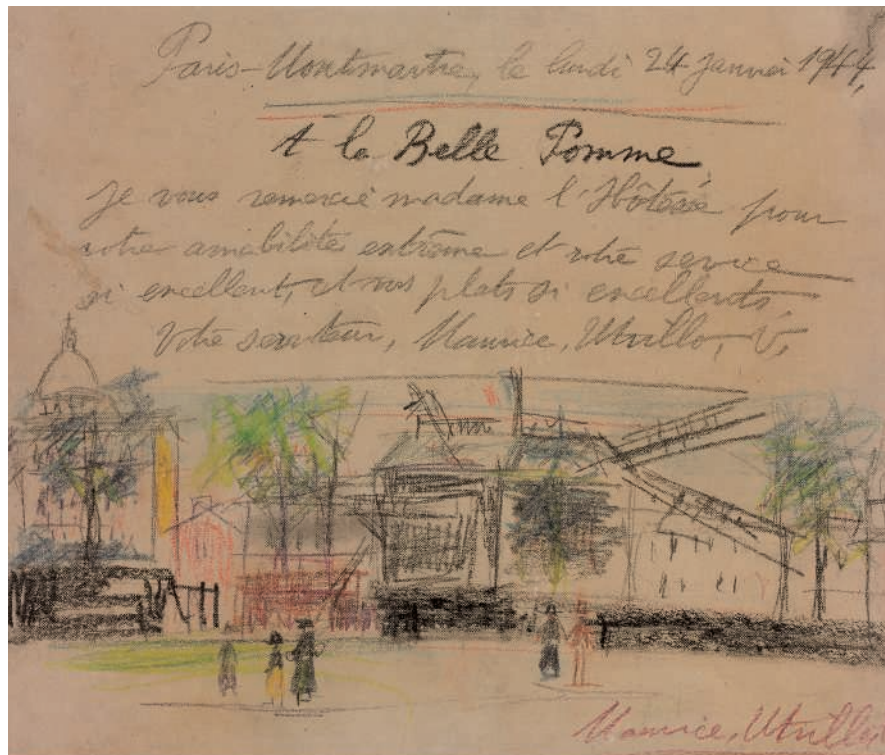 Paris-Montmartre, le lundi 24 Janvier 1944,
A la Belle Pomme
Je vous remercie madame l'Hôtesse pour
votre amabilité extrême et votre service
si excellent, et vos plats si excellents,
Votre serviteur, Maurice, Utrillo, V,
Maurice, Utrillo,